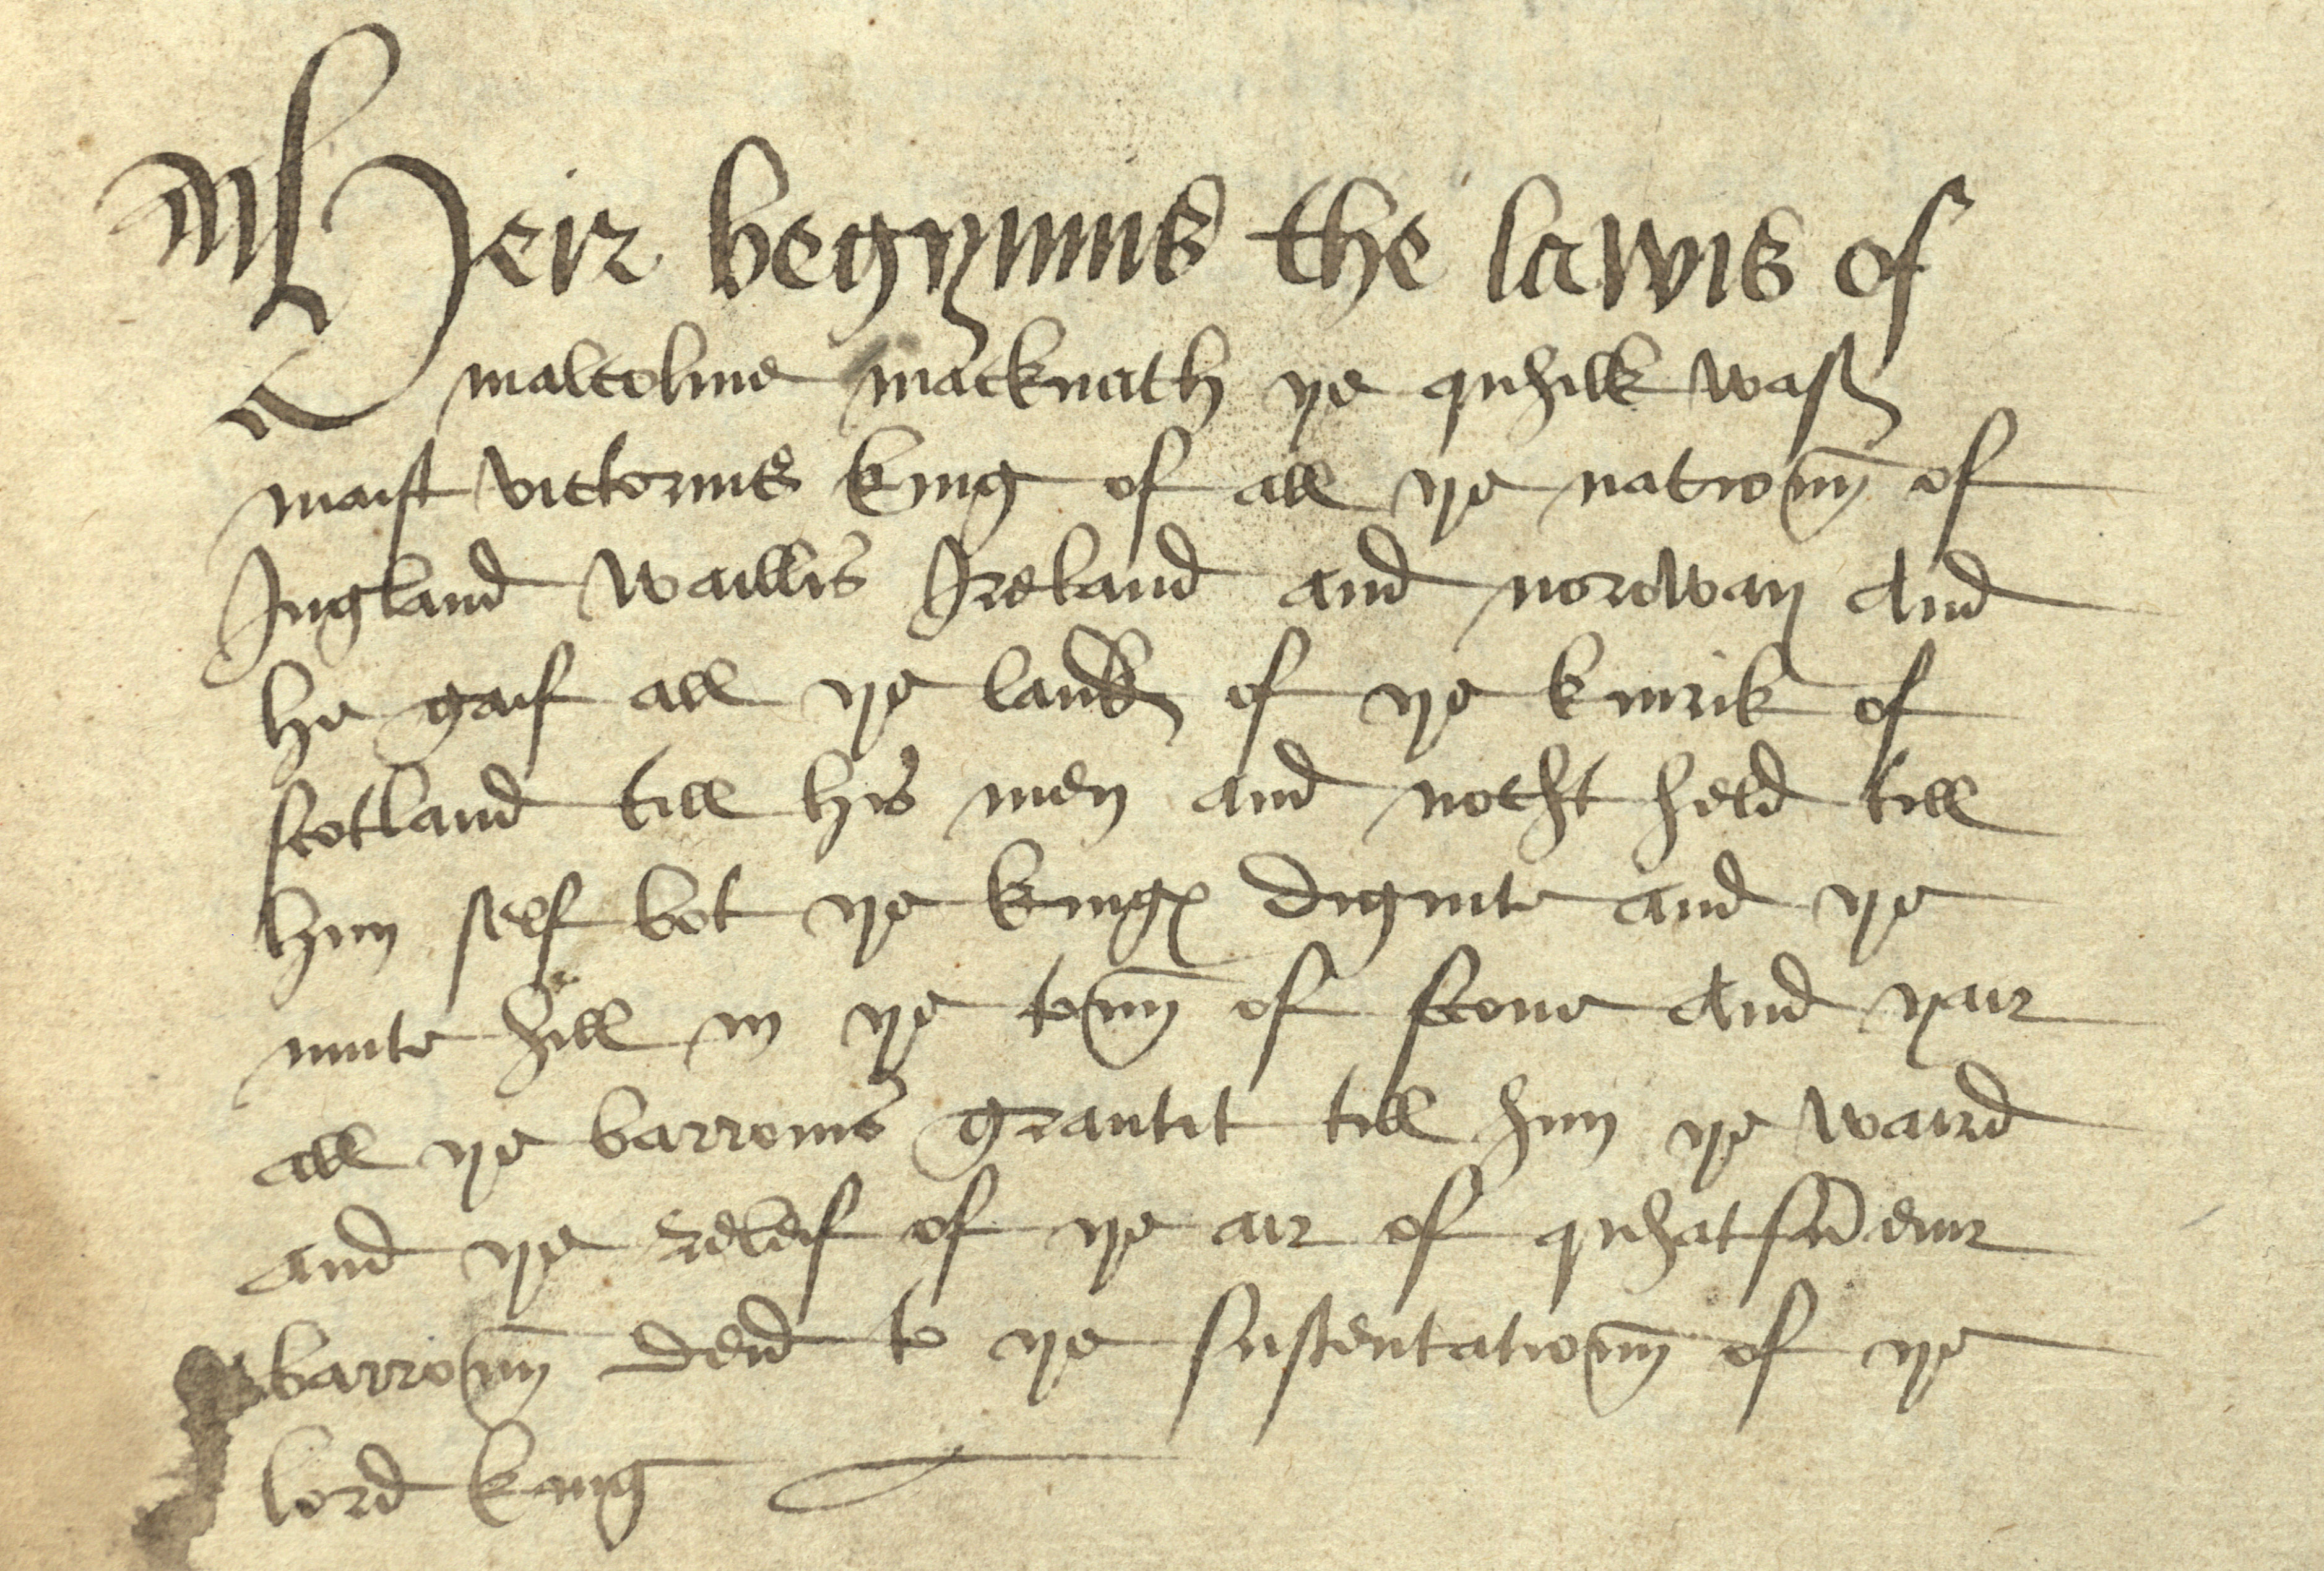 Heir begynnis the lawis of
malcolme macknath ye quhilk wass
maist victorius king of all ye nationn̄ of
Ingland waillis Ireland and noroway And
he gaif all ye landis of ye kinrik of
scotland till his men and nocht held till
him self bot ye kingis dignite and ye
mute hill in ye tonn̄ of scone And yair
all ye barronis grantit till him ye waird
and ye releif of ye air of quhatsūeuir
barronn̄ deid to ye sustentationn̄ of ye
lord king